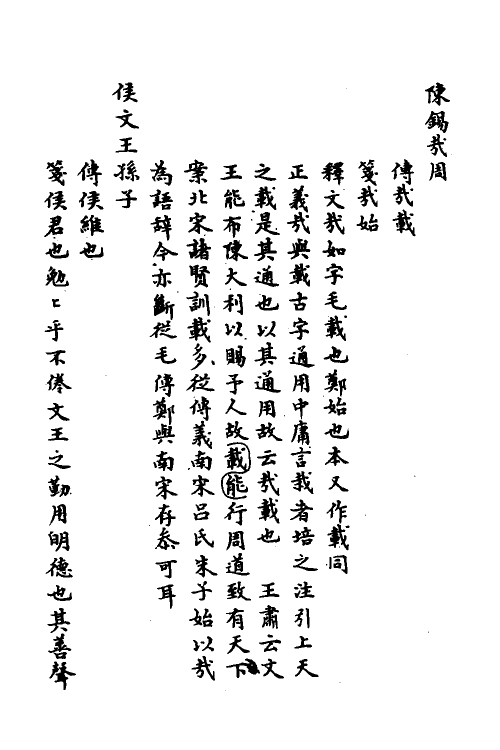 陳錫哉周
傳哉載
箋哉始
釋文哉如字毛載也鄭始也本又作載同
正義哉與載古字通用中庸言栽者培之注引上天
之載是其通也以其通用故云哉載也　王肅云文
王能布陳大利以賜予人故載能行周道致有天下
案北宋諸賢訓載多從傳義南宋呂氏朱子始以哉
為語辭今亦斷從毛傳鄭與南宋存叅可耳
侯文王孫子
傳侯維也
箋侯君也勉〻乎不倦文王之勤用明德也其善聲